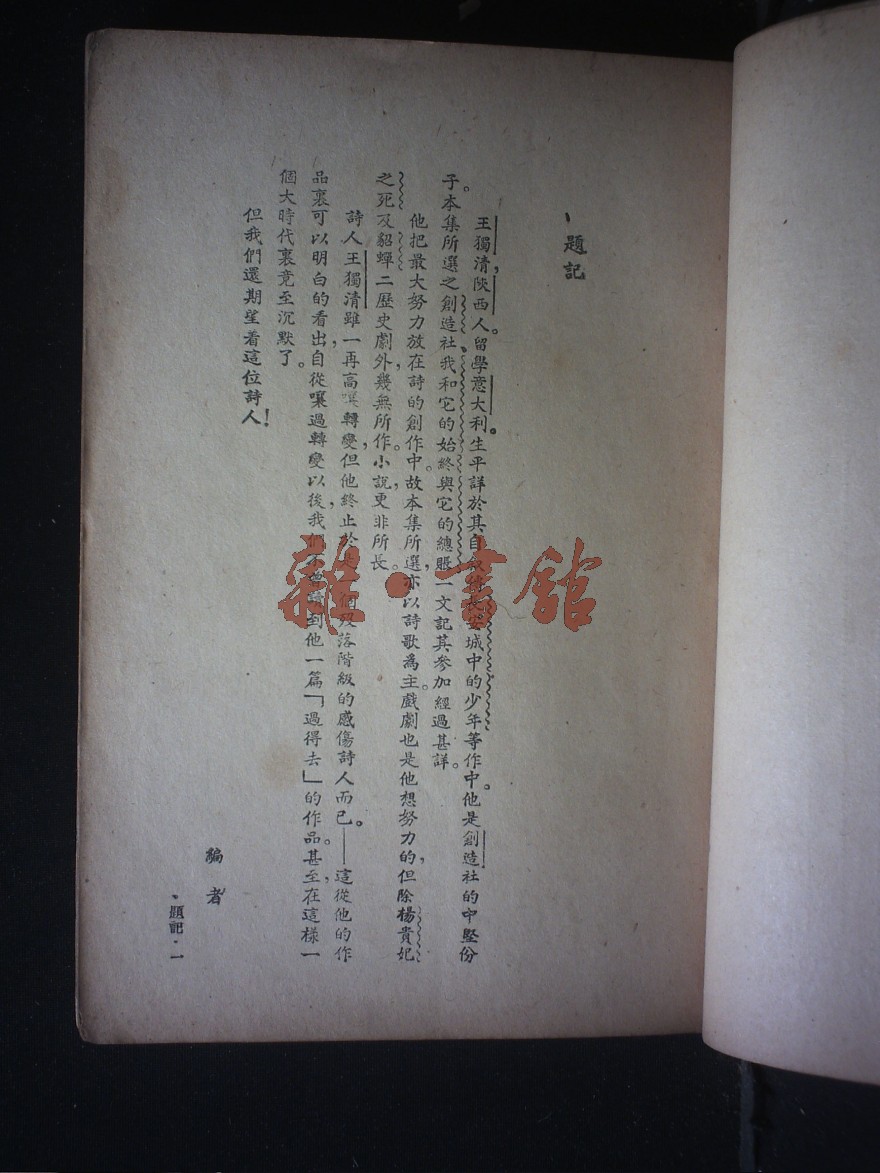 題記
王獨清，陝西人。留學意大利。生平詳於其自敘傳長安城中的少年等作中。他是創造社的中堅份
子。本集所選之創造社，我和它的始終與它的總賬一文記其參加經過甚詳。
他把最大努力放在詩的創作中。故本集所選，亦以詩歌爲主。戲劇也是他想努力的，但除楊貴妃
之死及貂蟬二歷史劇外，幾無所作。小說，更非所長。
詩人王獨清雖一再高嚷轉變，但他終止於是個沒落階級的感傷詩人而已。——這從他的作
品裏可以明白的看出，自從嚷過轉變以後，我們不曾讀到他一篇「過得去」的作品。甚至，在這樣一
個大時代裏竟至沉默了。
但我們還期望着這位詩人！
編者
、題記·一
雜·書館